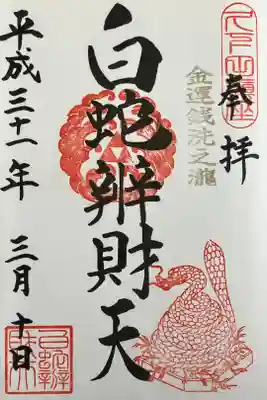 奉拝
金運銭洗之瀧
白蛇辨財天
平成三十一年 三月十日